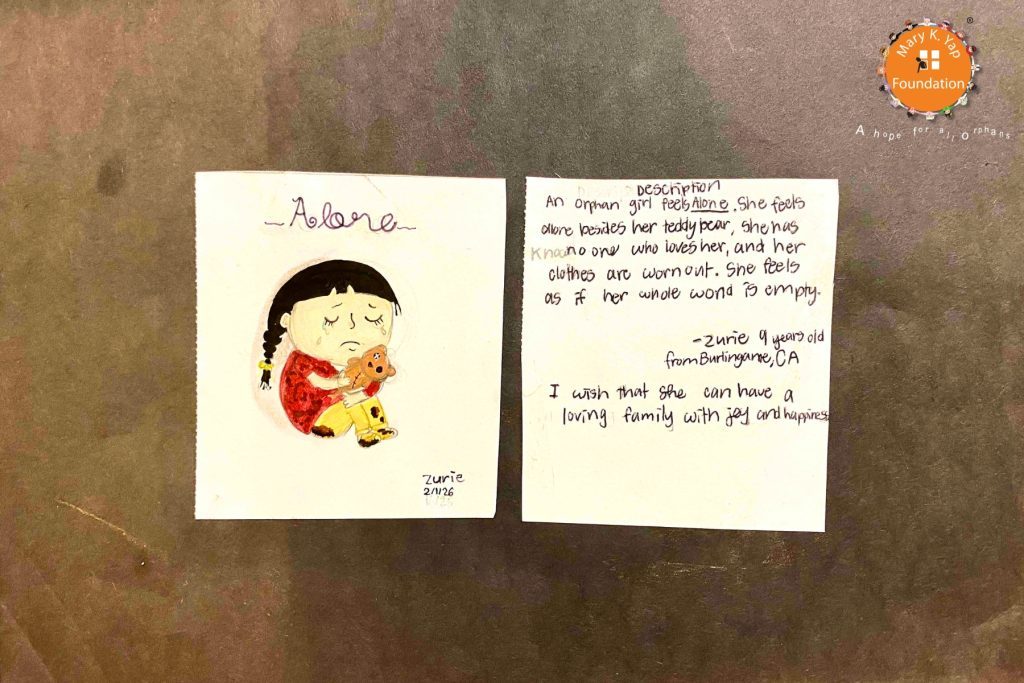 Mary K. Yap
Foundation
®
A hope for all Orphans
Alone
Zurie
2/1/26
Description
An orphan girl feels Alone. She feels
alone besides her teddy bear, she has
no one who loves her, and her
clothes are worn out. She feels
as if her whole world is empty.
-Zurie 9 years old
from Burlingame, CA
I wish that she can have a
loving family with joy and happiness